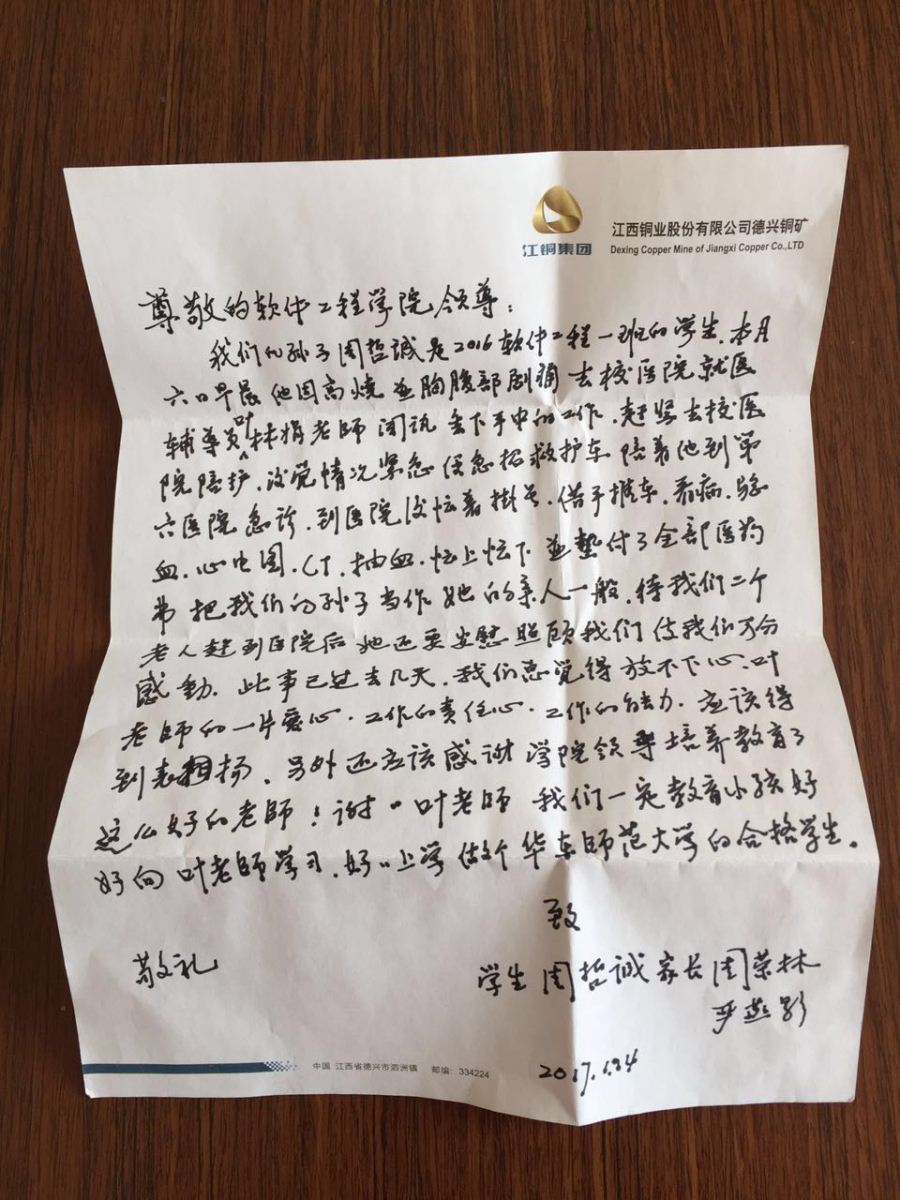 江铜集团
江西铜业股份有限公司德兴铜矿
Dexing Copper Mine of Jiangxi Copper Co.,LTD
尊敬的软件工程学院领导：
我们的孙子周哲诚是2016软件工程一班的学生.本月
六日早晨他因高烧並胸腹部剧痛去校医院就医
辅导员叶林娟老师闻讯丢下手中的工作.赶紧去校医
院陪护.没觉情况紧急便急招救护车陪着他到第
六医院急诊.到医院后忙着掛号.借手推车.看病.验
血.心电图.CT.抽血.忙上忙下並垫付了全部医药
费把我们的孙子当作她的亲人一般.待我们二个
老人赶到医院后她还要安慰照顾我们使我们万分
感动.此事已过去几天.我们总觉得放不下心.叶
老师的一片爱心.工作的责任心.工作的能力.应该得
到表扬.另外还应该感谢学院领导培养教育了
这么好的老师！谢〃叶老师我们一定教育小孩好
好向叶老师学习.好〃上学做个华东师范大学的合格学生。
致
敬礼
学生周哲诚家长周荣林
严燕影
2017.
中国 江西省德兴市泗洲镇 邮编：334224